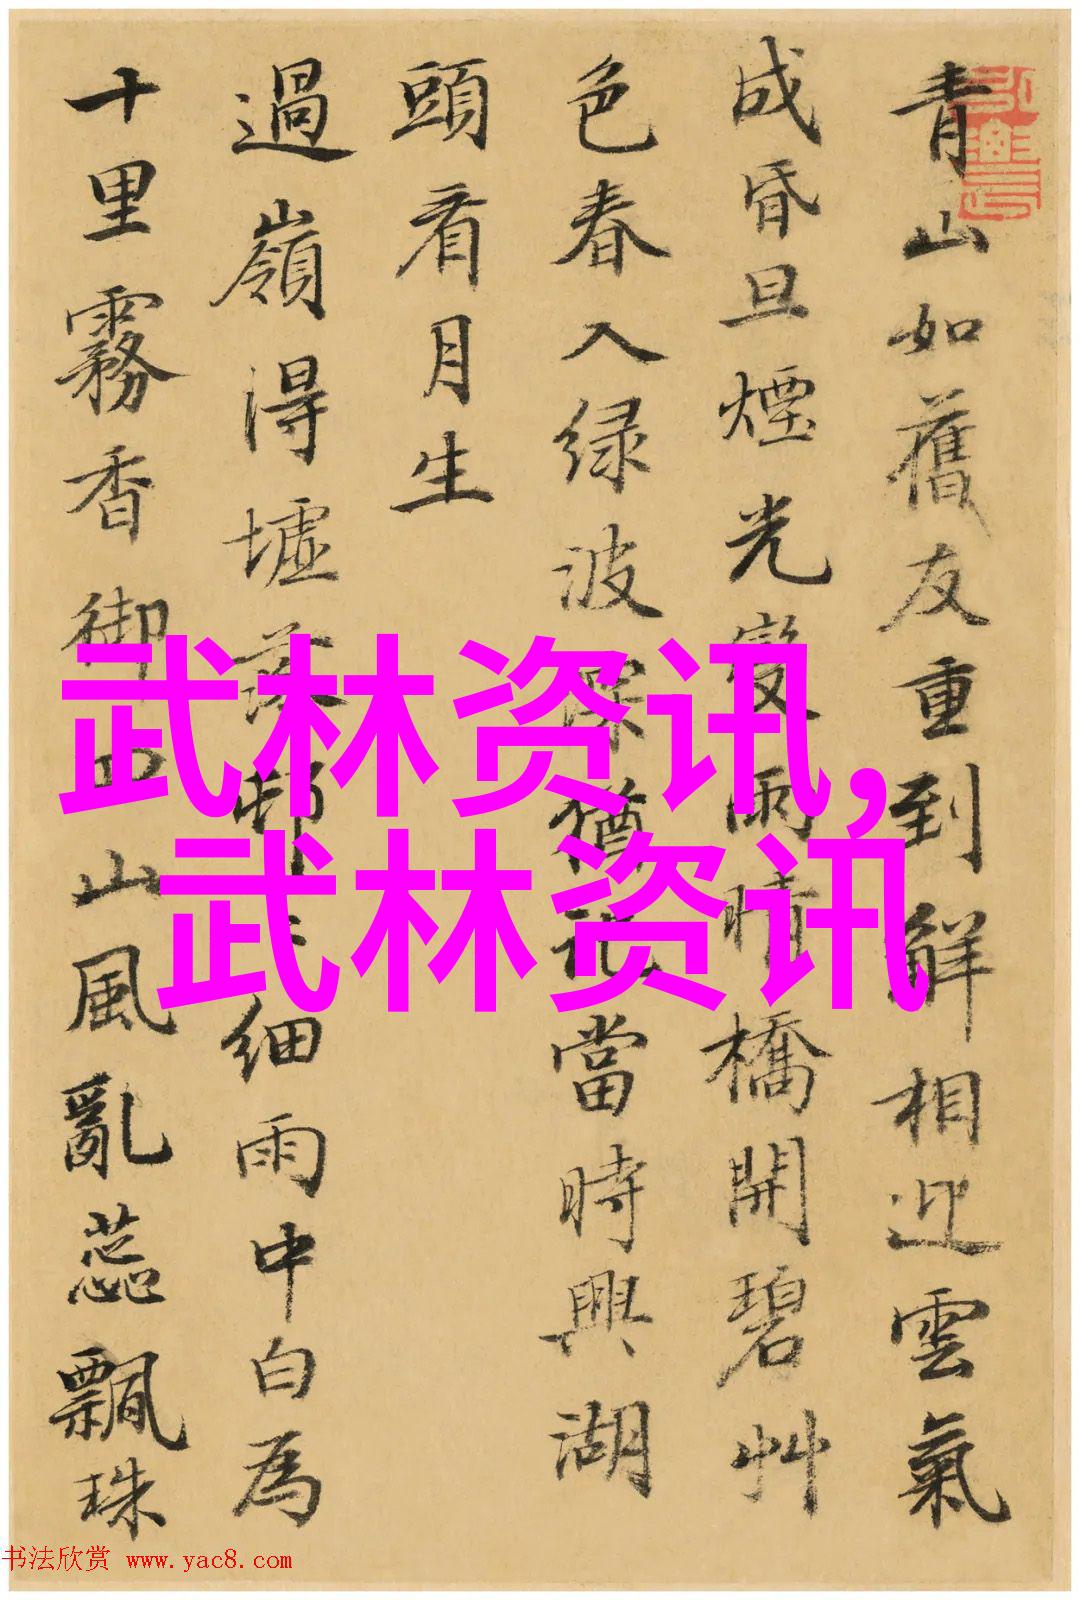 青山如舊友重到觧相迎雲氣
成昏旦煙光變雨晴橋開碧艸
色春入緑波深猶記當時興湖
頭看月生
過嶺得墟落邨細雨中白為
十里霧香御四山風亂蕊飄珠
武林资讯,
武林资讯
书法欣赏 www.yac8.com